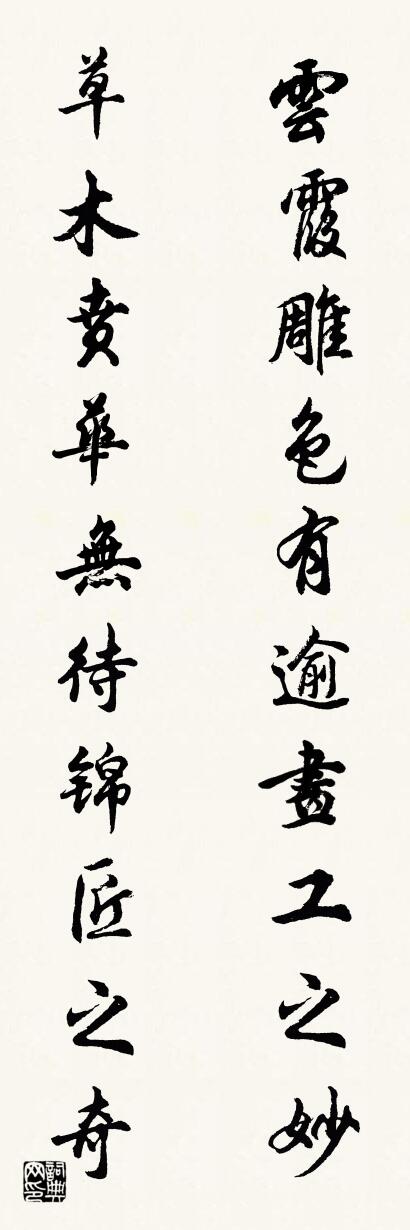 雲霞雕色有逾畫工之妙
草木賁華無待錦匠之奇
詞典網印